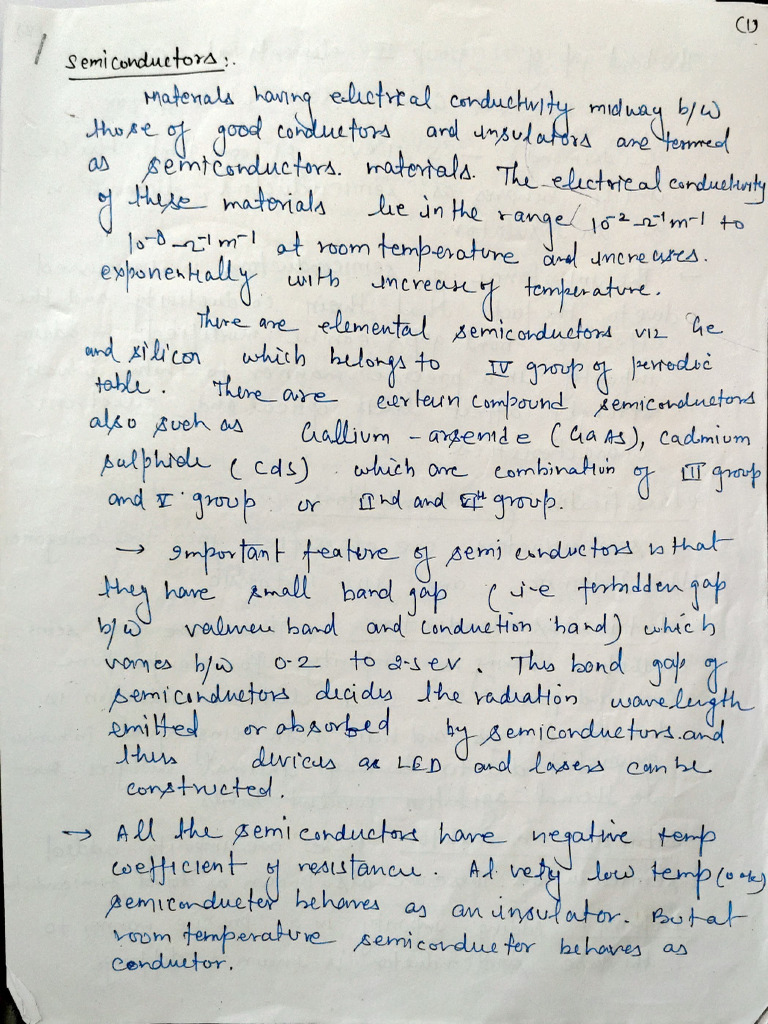 (1)
Semiconductors:.
Materials having electrical conductivity midway b/w
those of good conductors and insulators are termed
as semiconductors. materials. The electrical conductivity
of these materials lie in the range 10⁻² Ω⁻¹m⁻¹ to
10⁻⁸ Ω⁻¹m⁻¹ at room temperature and increases.
exponentially with increase of temperature.
There are elemental semiconductors viz Ge
and silicon which belongs to IV group of periodic
table. There are certain compound semiconductors
also such as Gallium - arsenide (GaAs), Cadmium
sulphide (CdS) which are combination of III group
and V group or IInd and VIth group.
→ Important feature of semiconductors is that
they have small band gap (i-e forbidden gap
b/w valence band and conduction band) which
varies b/w 0.2 to 2.5 ev. This band gap of
semiconductors decides the radiation wavelength
emitted or absorbed by semiconductors. and
thus devices as LED and lasers can be
constructed.
→ All the semiconductors have negative temp
coefficient of resistance. At very low temp (0 ok)
semiconductor behaves as an insulator. But at
room temperature semiconductor behaves as
conductor.